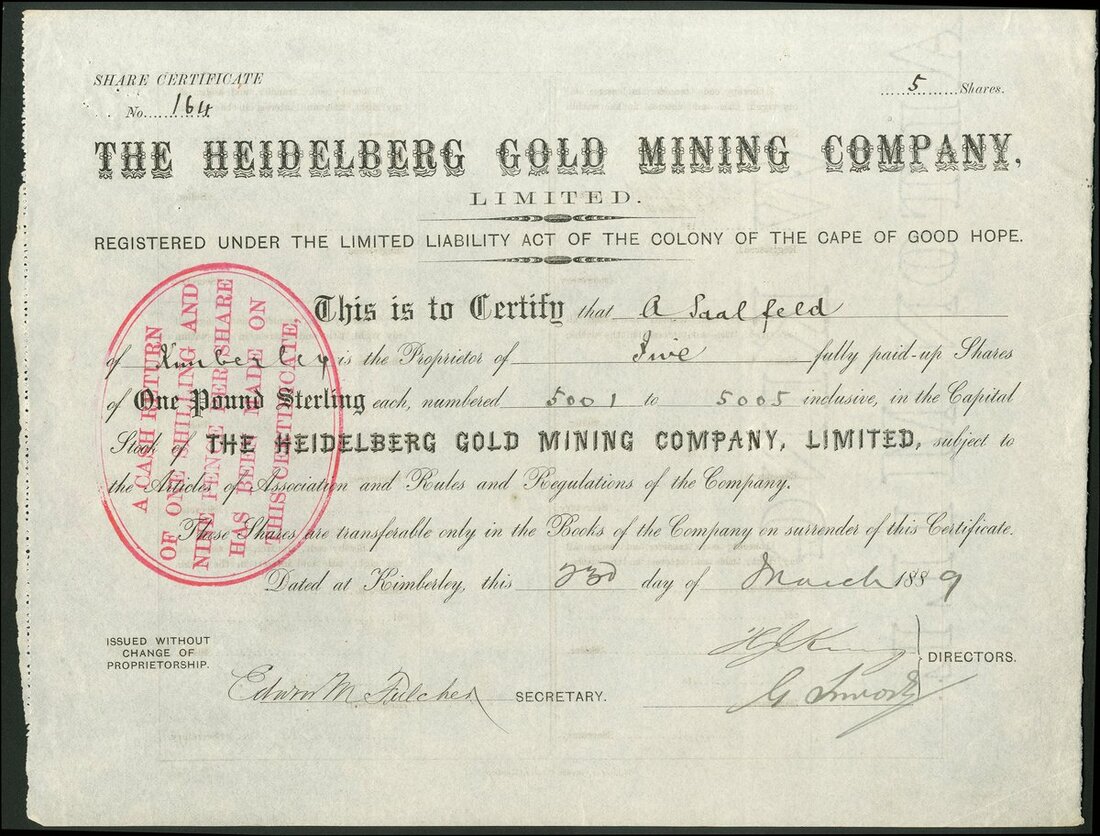 SHARE CERTIFICATE
No. 164
5 Shares.
THE HEIDELBERG GOLD MINING COMPANY,
LIMITED.
REGISTERED UNDER THE LIMITED LIABILITY ACT OF THE COLONY OF THE CAPE OF GOOD HOPE.
This is to Certify that A Saalfeld
of Kimberley is the Proprietor of Five fully paid-up Shares
of One Pound Sterling each, numbered 5001 to 5005 inclusive, in the Capital
Stock of THE HEIDELBERG GOLD MINING COMPANY, LIMITED, subject to
the Articles of Association and Rules and Regulations of the Company.
These Shares are transferable only in the Books of the Company on surrender of this Certificate.
Dated at Kimberley, this 23rd day of March 1889
A CASH RETURN
OF ONE SHILLING AND
NINE PENCE PER SHARE
HAS BEEN MADE ON
THIS CERTIFICATE.
ISSUED WITHOUT
CHANGE OF
PROPRIETORSHIP.
Edwin M Fulcher SECRETARY.
DIRECTORS.